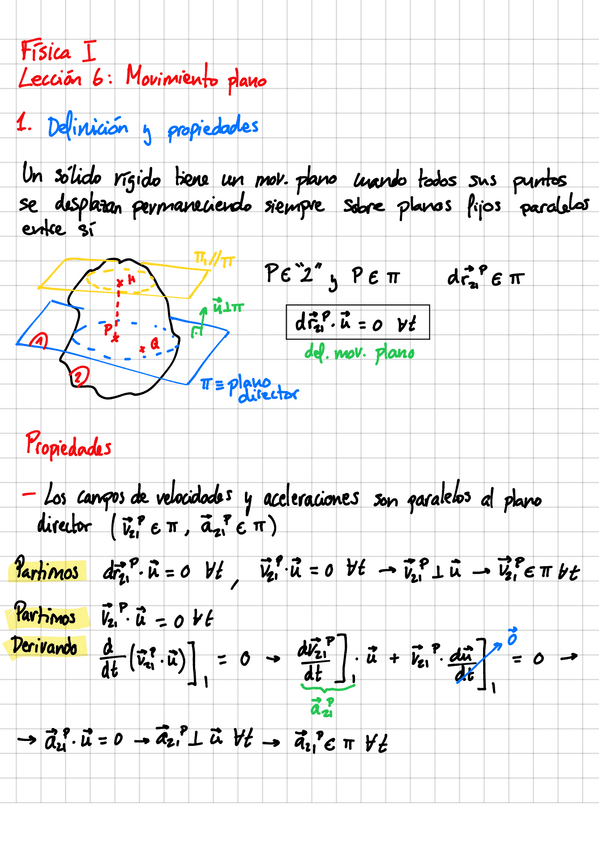 Física I
Lección 6: Movimiento plano
1. Definición y propiedades
Un sólido rígido tiene un mov. plano cuando todos sus puntos
se desplazan permaneciendo siempre sobre planos fijos paralelos
entre sí
π₁//π
H
P
Q
1
2
u⃗⊥π
π ≡ plano
director
P ∈ "2" y P ∈ π dr⃗₂₁ᴾ ∈ π
dr⃗₂₁ᴾ · u⃗ = 0 ∀t
def. mov. plano
Propiedades
- Los campos de velocidades y aceleraciones son paralelos al plano
director (v⃗₂₁ᴾ ∈ π, a⃗₂₁ᴾ ∈ π)
Partimos dr⃗₂₁ᴾ · u⃗ = 0 ∀t, v⃗₂₁ᴾ · u⃗ = 0 ∀t → v⃗₂₁ᴾ ⊥ u⃗ → v⃗₂₁ᴾ ∈ π ∀t
Partimos v⃗₂₁ᴾ · u⃗ = 0 ∀t
Derivando d/dt (v⃗₂₁ᴾ · u⃗)]₁ = 0 → dv⃗₂₁ᴾ/dt]₁ · u⃗ + v⃗₂₁ᴾ · du⃗/dt]₁ = 0 →
0⃗
a⃗₂₁ᴾ
→ a⃗₂₁ᴾ · u⃗ = 0 → a⃗₂₁ᴾ ⊥ u⃗ ∀t → a⃗₂₁ᴾ ∈ π ∀t